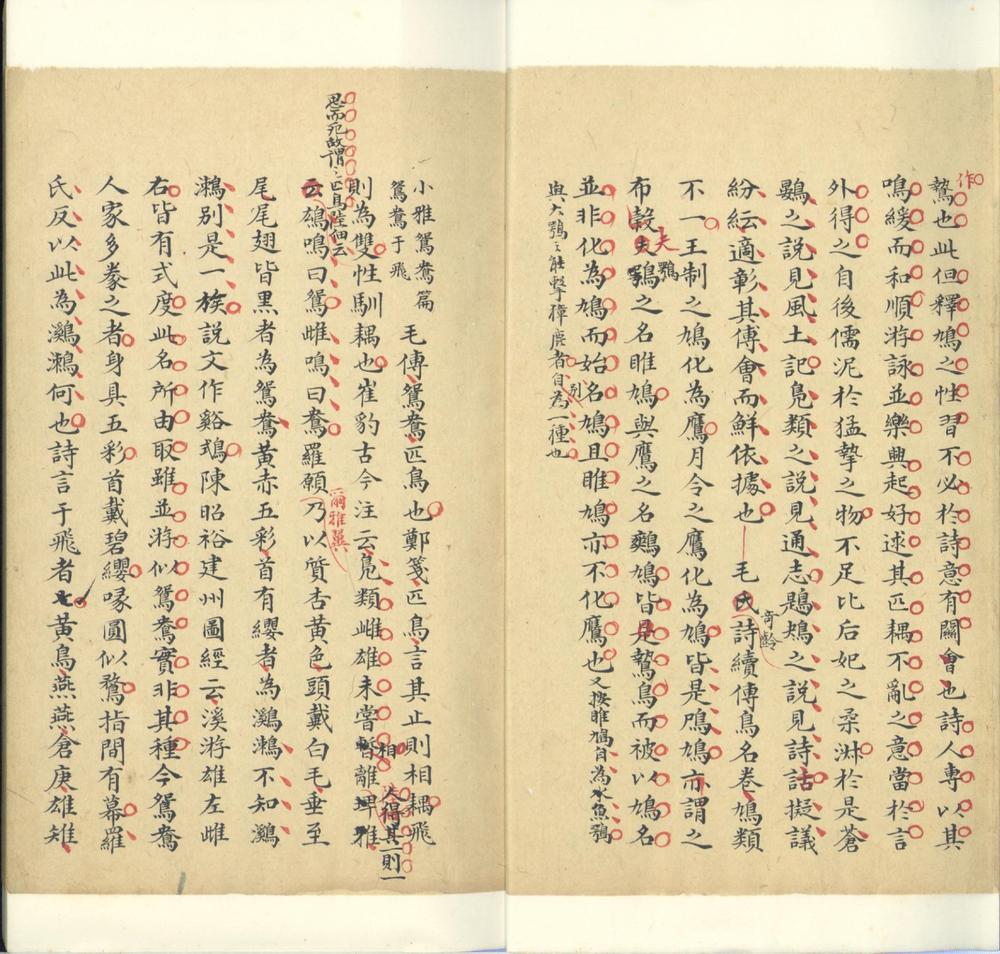 作
鷙也此但釋鳩之性習不必於詩意有關會也詩人專以其
鳴緩而和順游詠並樂興起好逑其匹耦不亂之意當於言
外得之自後儒泥於猛摯之物不足比后妃之柔淑於是蒼
鷃之說見風土記鳧類之說見通志鶗鴂之說見詩詁擬議
紛紜適彰其傅會而鮮依據也毛氏詩續傳鳥名卷鳩類
奇齡
不一王制之鳩化為鷹月令之鷹化為鳩皆是鳲鳩亦謂之
布穀夫鶚之名雎鳩與鷹之名鷞鳩皆是鷙鳥而被以鳩名
夫鶚
並非化為鳩而始名鳩且雎鳩亦不化鷹也又按雎鳩自為水魚鶚
與大鶚之能擊獐鹿者自為一種也
別
小雅鴛鴦篇
鴛鴦于飛
毛傳鴛鴦匹鳥也鄭箋匹鳥言其止則相耦飛
則為雙性馴耦也崔豹古今注云鳧類雌雄未嘗暫離埤雅
相
人得其一則一
思而死故謂之匹鳥陸佃云
云雄鳴曰鴛雌鳴曰鴦羅願乃以質杏黃色頭戴白毛垂至
爾雅翼
尾尾翅皆黑者為鴛鴦黃赤五彩首有纓者為鸂鶒不知鸂
鶒別是一族說文作谿鵡陳昭裕建州圖經云溪游雄左雌
右皆有式度此名所由取雖並游似鴛鴦實非其種今鴛鴦
人家多豢之者身具五彩首戴碧纓喙圓似鶩指間有幕羅
氏反以此為鸂鶒何也詩言于飛者七黃鳥燕燕倉庚雄雉